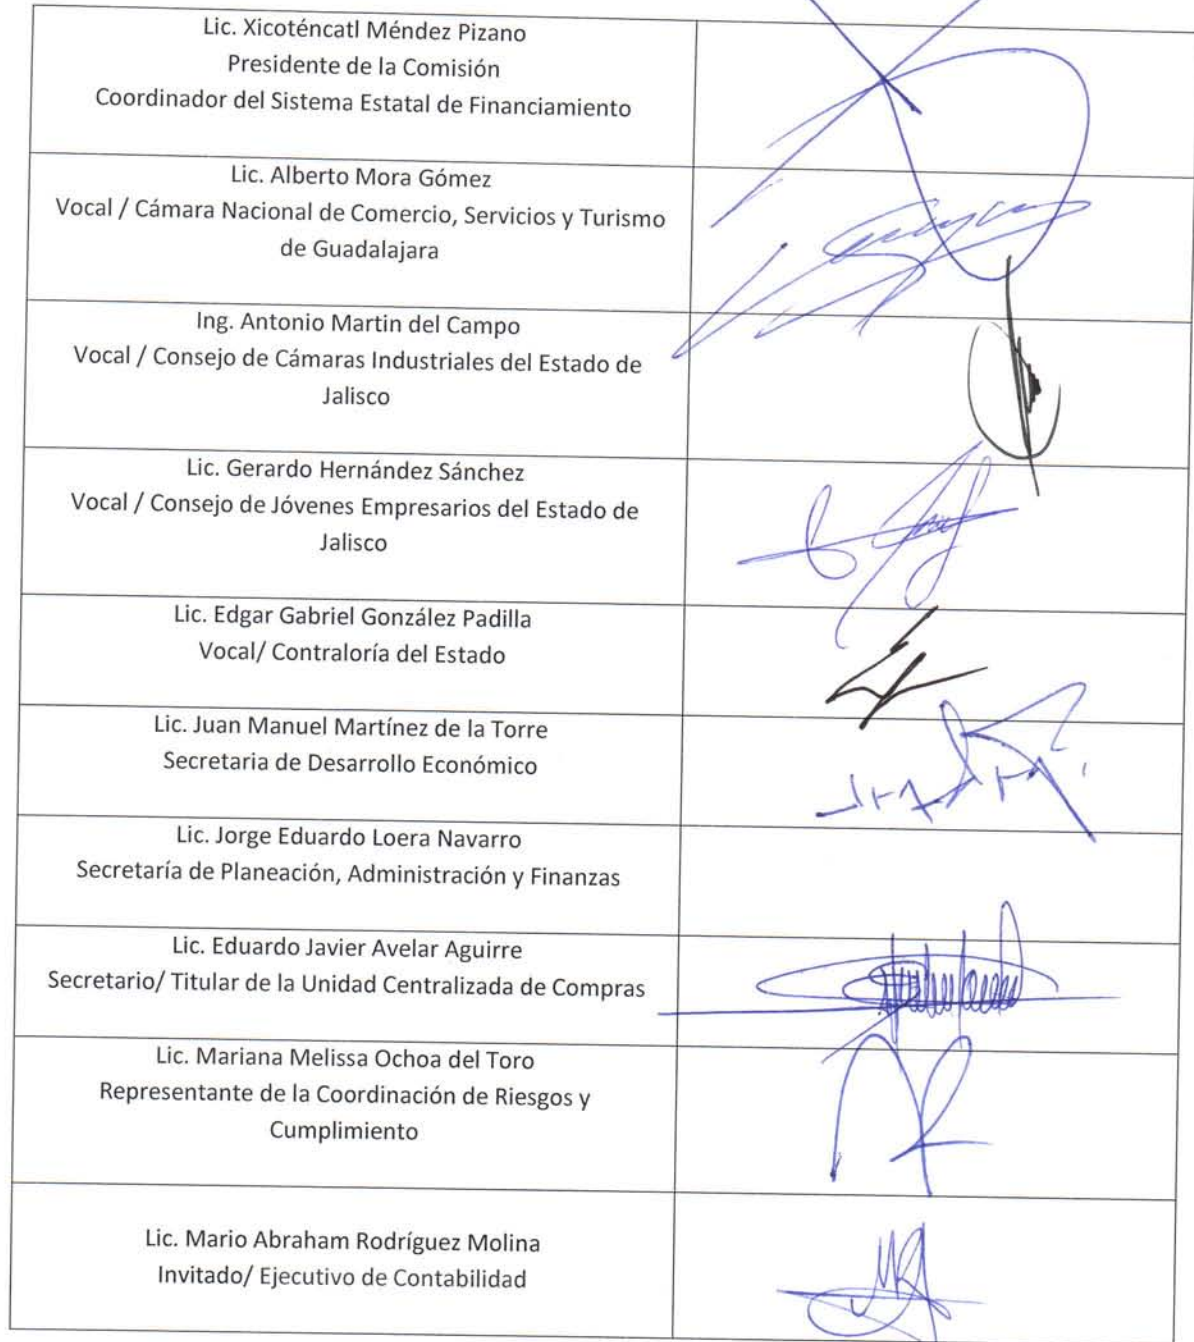 Lic. Xicoténcatl Méndez Pizano
Presidente de la Comisión
Coordinador del Sistema Estatal de Financiamiento
Lic. Alberto Mora Gómez
Vocal / Cámara Nacional de Comercio, Servicios y Turismo
de Guadalajara
Ing. Antonio Martin del Campo
Vocal / Consejo de Cámaras Industriales del Estado de
Jalisco
Lic. Gerardo Hernández Sánchez
Vocal / Consejo de Jóvenes Empresarios del Estado de
Jalisco
Lic. Edgar Gabriel González Padilla
Vocal/ Contraloría del Estado
Lic. Juan Manuel Martínez de la Torre
Secretaria de Desarrollo Económico
Lic. Jorge Eduardo Loera Navarro
Secretaría de Planeación, Administración y Finanzas
Lic. Eduardo Javier Avelar Aguirre
Secretario/ Titular de la Unidad Centralizada de Compras
Lic. Mariana Melissa Ochoa del Toro
Representante de la Coordinación de Riesgos y
Cumplimiento
Lic. Mario Abraham Rodríguez Molina
Invitado/ Ejecutivo de Contabilidad